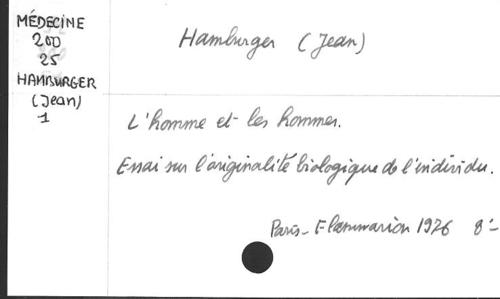 MÉDECINE
200
25
HAMBURGER
(Jean)
1
Hamburger (Jean)
L'homme et les hommes.
Essai sur l'originalité biologique de l'individu.
Paris - Flammarion 1976 8°-